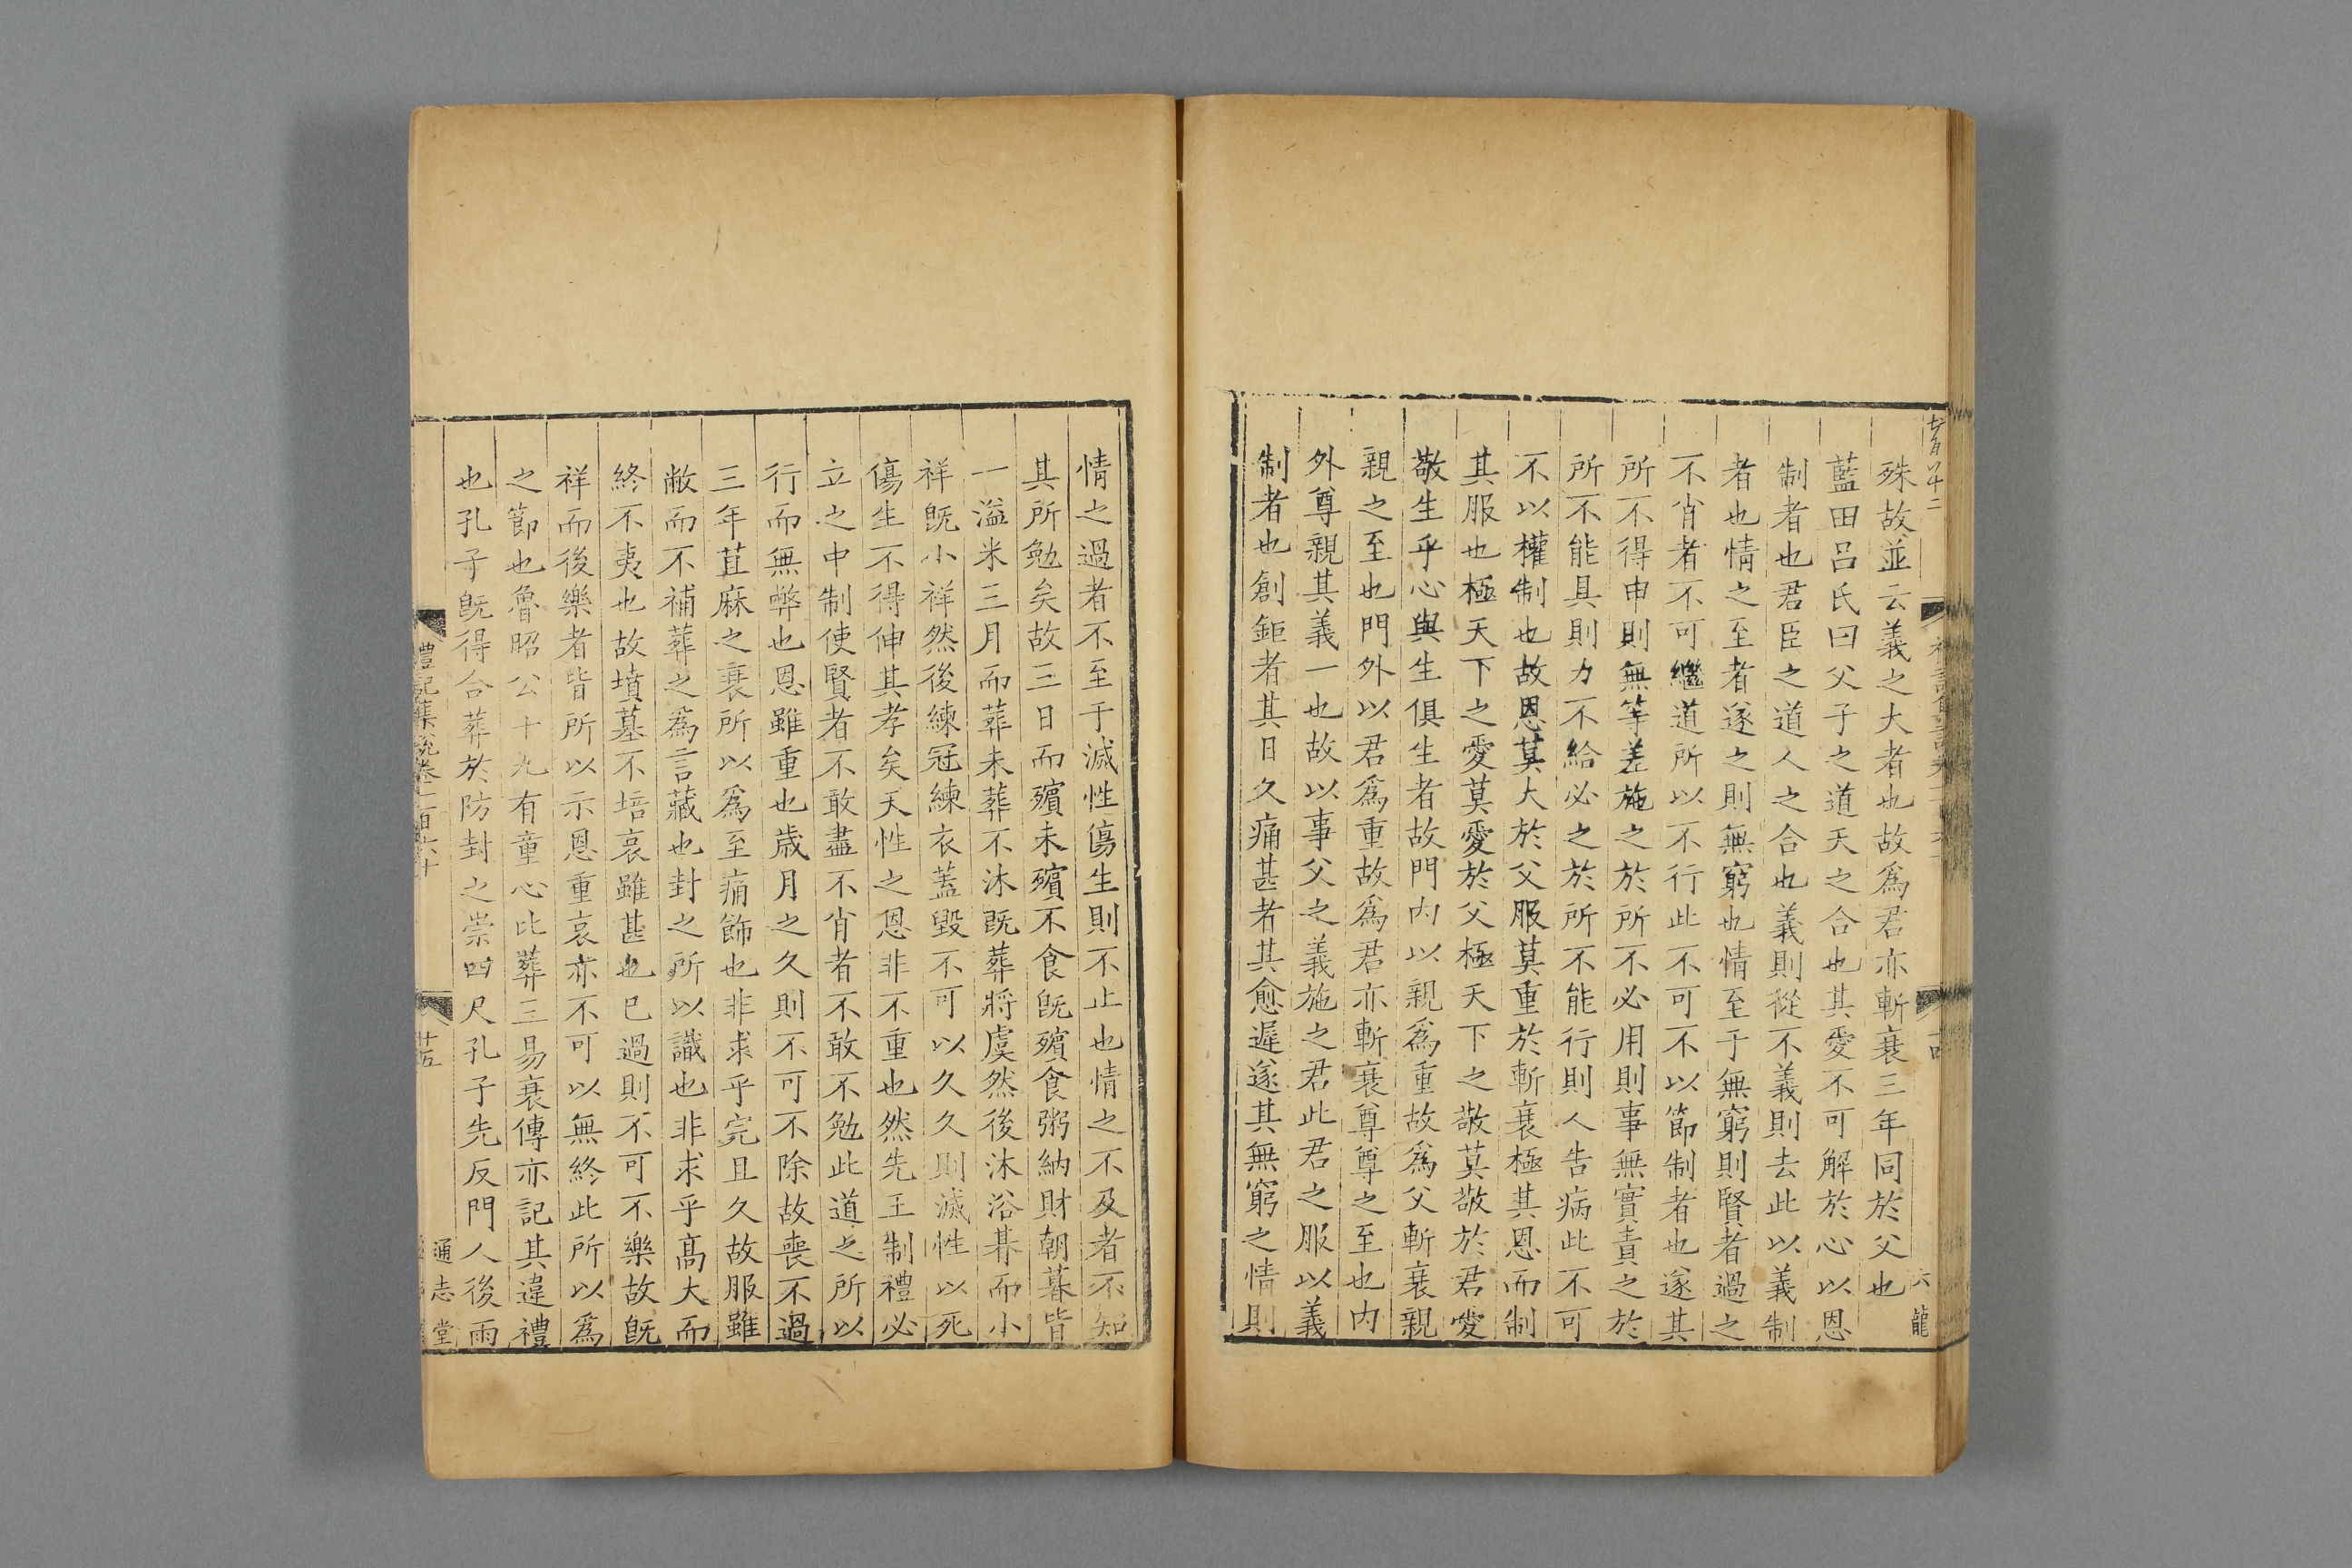 殊故並云義之大者也故爲君亦斬衰三年同於父也
藍田呂氏曰父子之道天之合也其愛不可解於心以恩
制者也君臣之道人之合也義則從不義則去此以義制
者也情之至者遂之則無窮也情至于無窮則賢者過之
不肖者不可繼道所以不行此不可不以節制者也遂其
所不得申則無等差施之於所不必用則事無實責之於
所不能具則力不給必之於所不能行則人告病此不可
不以權制也故恩莫大於父服莫重於斬衰極其恩而制
其服也極天下之愛莫愛於父極天下之敬莫敬於君愛
敬生乎心與生俱生者故門内以親爲重故爲父斬衰親
親之至也門外以君爲重故爲君亦斬衰尊尊之至也内
外尊親其義一也故以事父之義施之君此君之服以義
制者也創鉅者其日久痛甚者其愈遲遂其無窮之情則
六 龍
情之過者不至于滅性傷生則不止也情之不及者不知
其所勉矣故三日而殯未殯不食旣殯食粥納財朝暮皆
一溢米三月而葬未葬不沐旣葬將虞然後沐浴朞而小
祥旣小祥然後練冠練衣蓋毀不可以久久則滅性以死
傷生不得伸其孝矣天性之恩非不重也然先王制禮必
立之中制使賢者不敢盡不肖者不敢不勉此道之所以
行而無弊也恩雖重也歲月之久則不可不除故喪不過
三年苴麻之衰所以爲至痛飾也非求乎完且久故服雖
敝而不補葬之爲言藏也封之所以識也非求乎高大而
終不夷也故墳墓不培哀雖甚也已過則不可不樂故旣
祥而後樂者皆所以示恩重哀亦不可以無終此所以爲
之節也魯昭公十九有童心比葬三易衰傳亦記其違禮
也孔子旣得合葬於防封之崇四尺孔子先反門人後雨
禮記集說卷一百六十
廿五
通志堂